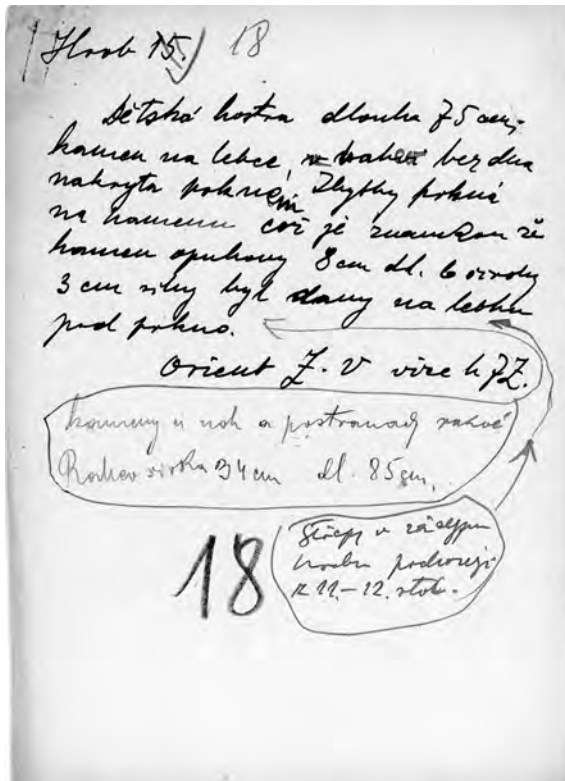 Hrob 15. 18
Dětská kostra dlouhá 75 cm,
kamen na lebce, rakev bez dna
nakryta prknem Zbytky prkna
na kamenu což je znamkou že
kamen opukovy 8 cm dl. 6 siroky
3 cm silny byl dany na lebku
pod prkno.
Orient Z. V vice k JZ.
kameny u noh a postranach rakve
Rakev sirka 34 cm dl. 85 cm.
18
Střepy v zásypu
hrobu pochazeji
z 11.-12. stol.